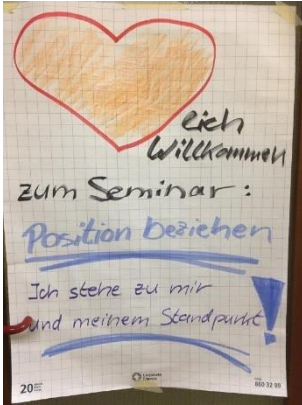 lich
Willkommen
zum Seminar:
Position beziehen
Ich stehe zu mir
und meinem Standpunkt!
20